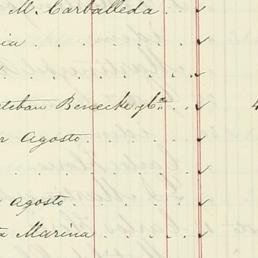 M. Carballeda. ✓
ia . . . ✓
. . . . ✓
steban Benecke y Ca. ✓ 4
r Agosto. . . ✓
. . . ✓
Agosto . . . ✓
a Marina . . . ✓